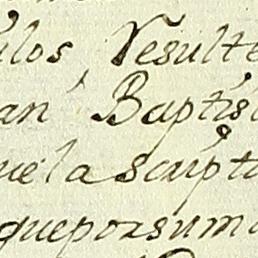 ulos, Vesulte
an Baptis
uela scripta
queporsuma